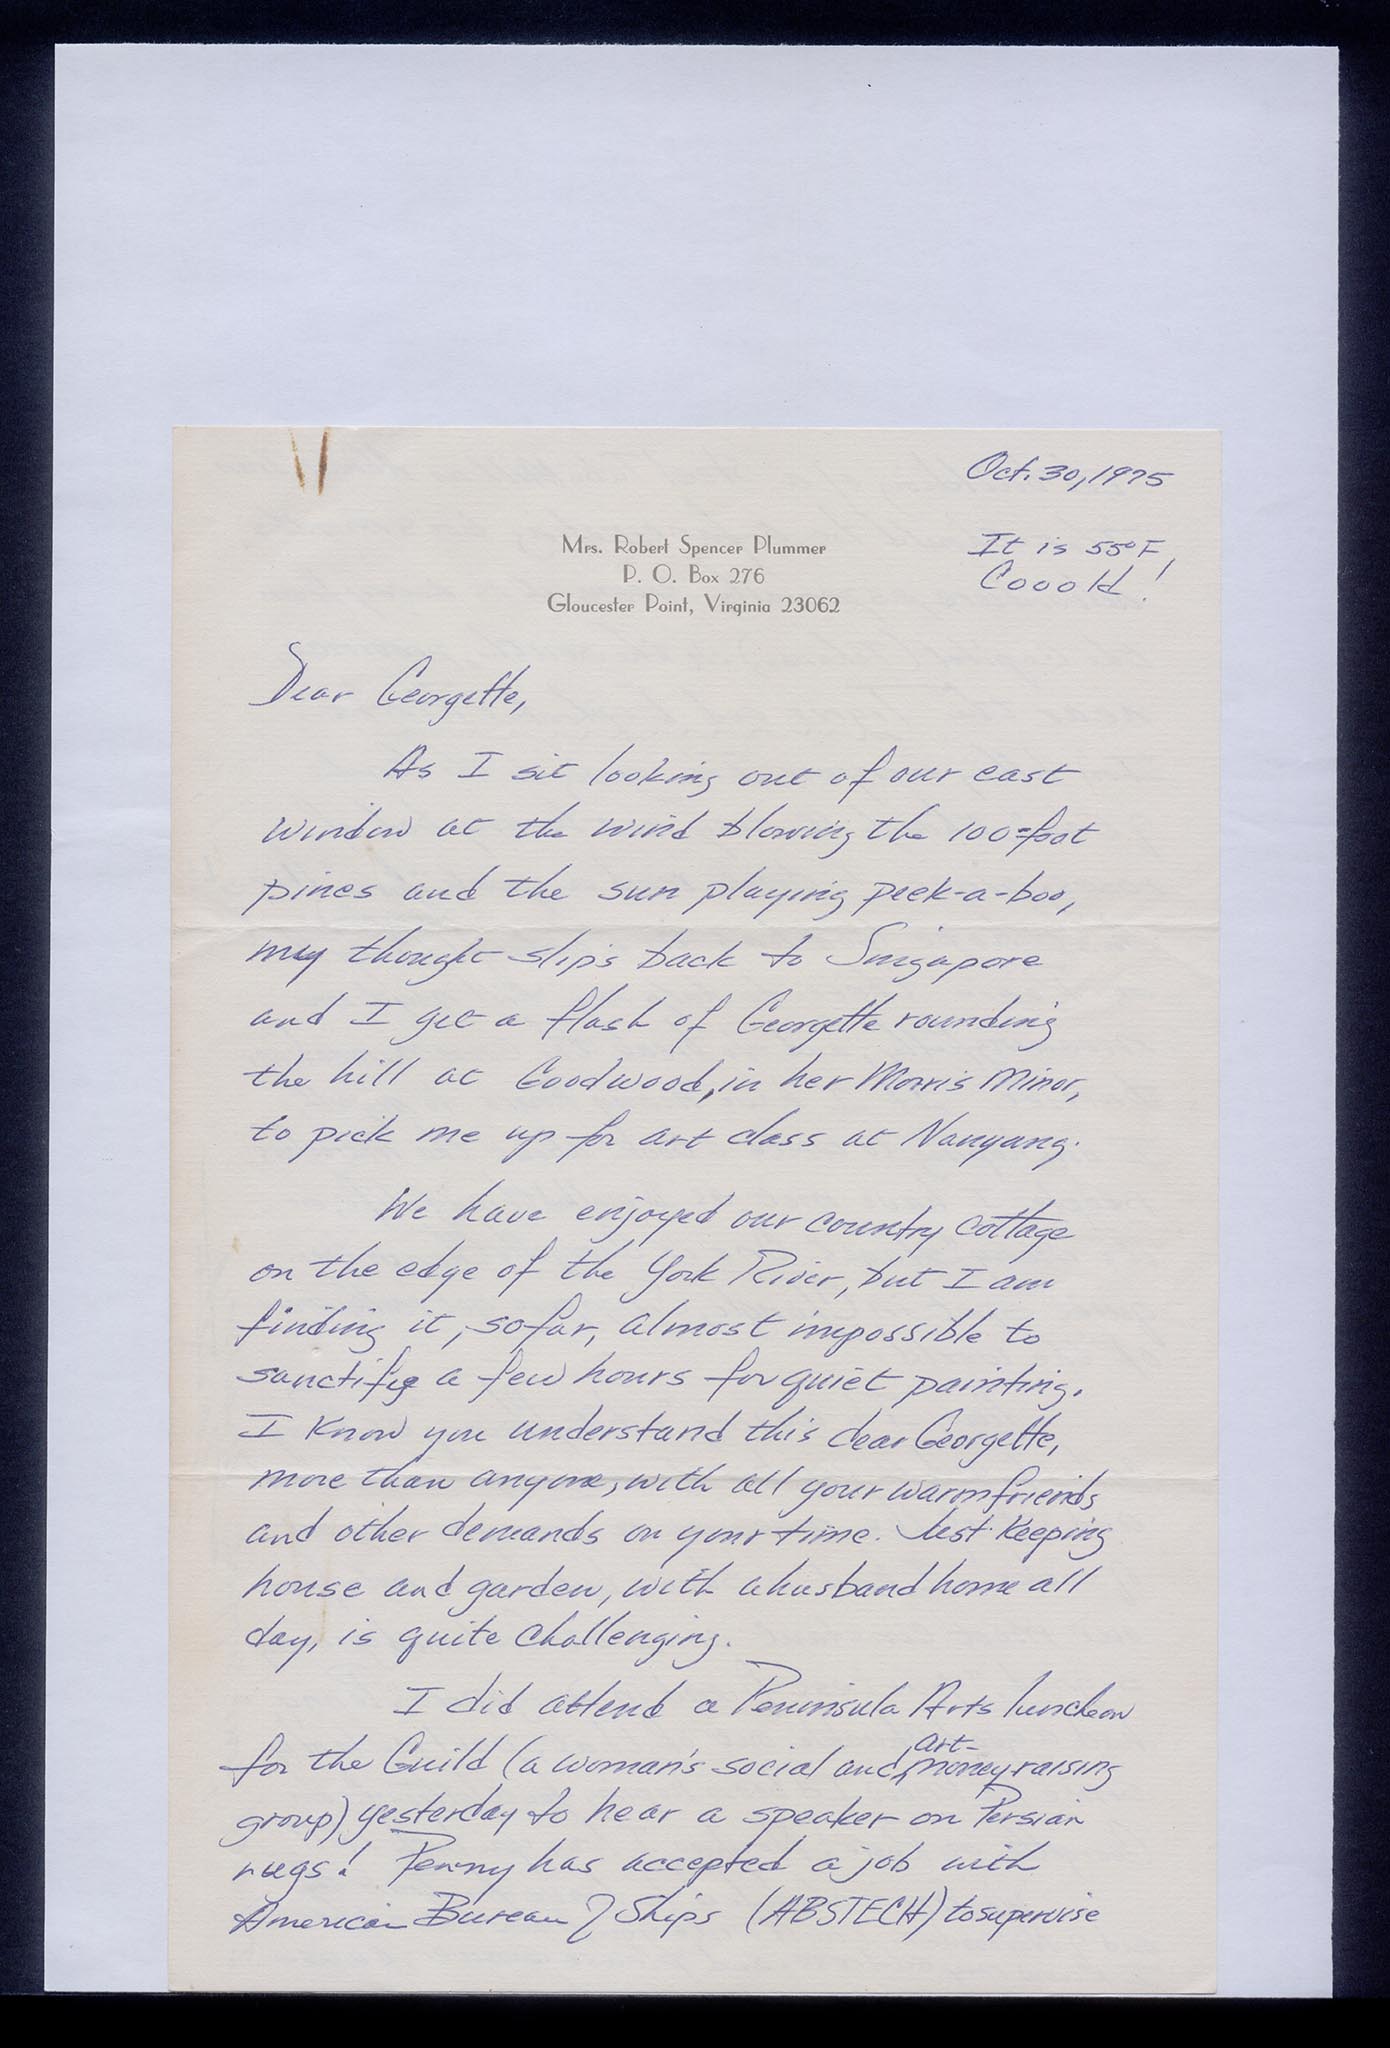 Oct. 30, 1975
Mrs. Robert Spencer Plummer
P. O. Box 276
Gloucester Point, Virginia 23062
It is 55° F,
Cooold!
Dear Georgette,
As I sit looking out of our east
window at the wind blowing the 100-foot
pines and the sun playing peek-a-boo,
my thought slips back to Singapore
and I get a flash of Georgette rounding
the hill at Goodwood, in her Morris Minor,
to pick me up for art class at Nanyang.
We have enjoyed our country cottage
on the edge of the York River, but I am
finding it, so far, almost impossible to
sanctify a few hours for quiet painting.
I know you understand this dear Georgette,
more than anyone, with all your warm friends
and other demands on your time. Just keeping
house and garden, with a husband home all
day, is quite challenging.
I did attend a Peninsula Arts luncheon
for the Guild (a woman's social and art-money raising
group) yesterday to hear a speaker on Persian
rugs! Penny has accepted a job with
American Bureau of Ships (ABSTECH) to supervise